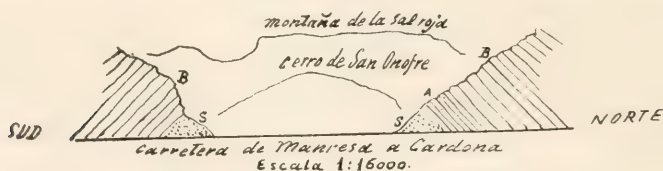 montaña de la sal roja
cerro de San Onofre
B
B
A
S
S
SUD
NORTE
Carretera de Manresa a Cardona
Escala 1:16000.